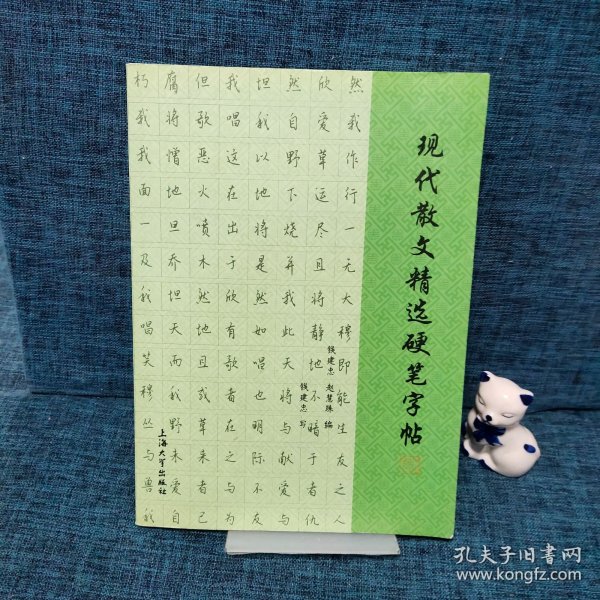 现代散文精选硬笔字帖
钱建忠 赵慧珠 编
钱建忠 写
上海大学出版社
朽腐但我坦然欣然
我将歌唱我自爱我
我憎恶这以野草作
面地火在地下运行
一旦喷出将烧尽一
及乔木于是并且无
我坦然欣然我将大
唱天地有如此静穆
笑而且歌唱天地即
穆我或者也将不能
丛野草在明与暗生
与未来之际献于友
兽爱者与不爱者之
我自己为友与仇人
孔夫子旧书网
www.kongfz.com